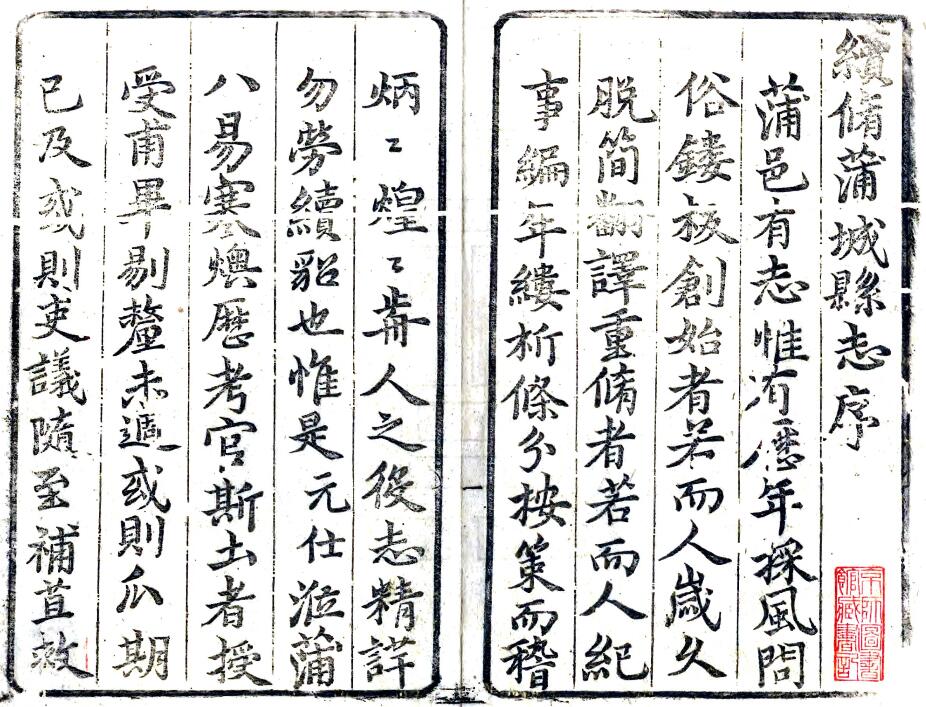 續脩蒲城縣志序
蒲邑有志惟有歷年採風問
俗鏤板創始者若而人歲久
脫簡翻譯重脩者若而人紀
事編年縷析條分按策而稽
炳〻煌〻前人之役志精詳
勿勞續貂也惟是元仕涖蒲
八易寒燠歷考官斯土者授
受甫畢剔釐未遑或則瓜期
已及或則吏議隨至補苴救
京師圖書
館藏書記